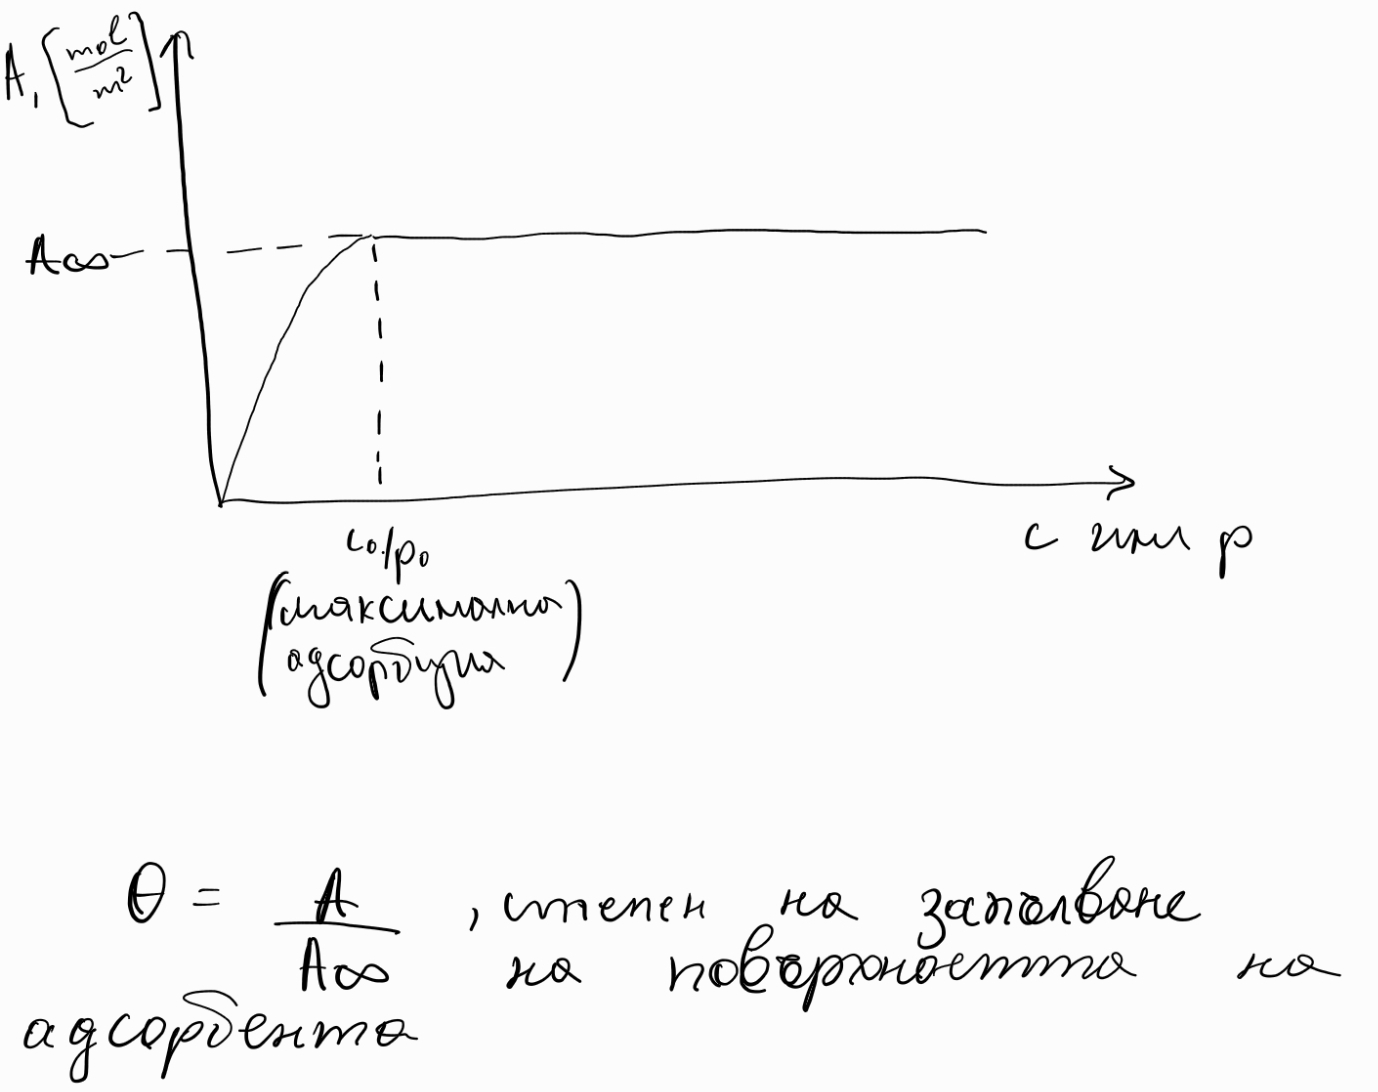 A, [mol/m²]
A∞
c или p
c₀/p₀
(максимална
адсорбция)
θ = A/A∞ , степен на запълване
на повърхността на
адсорбента